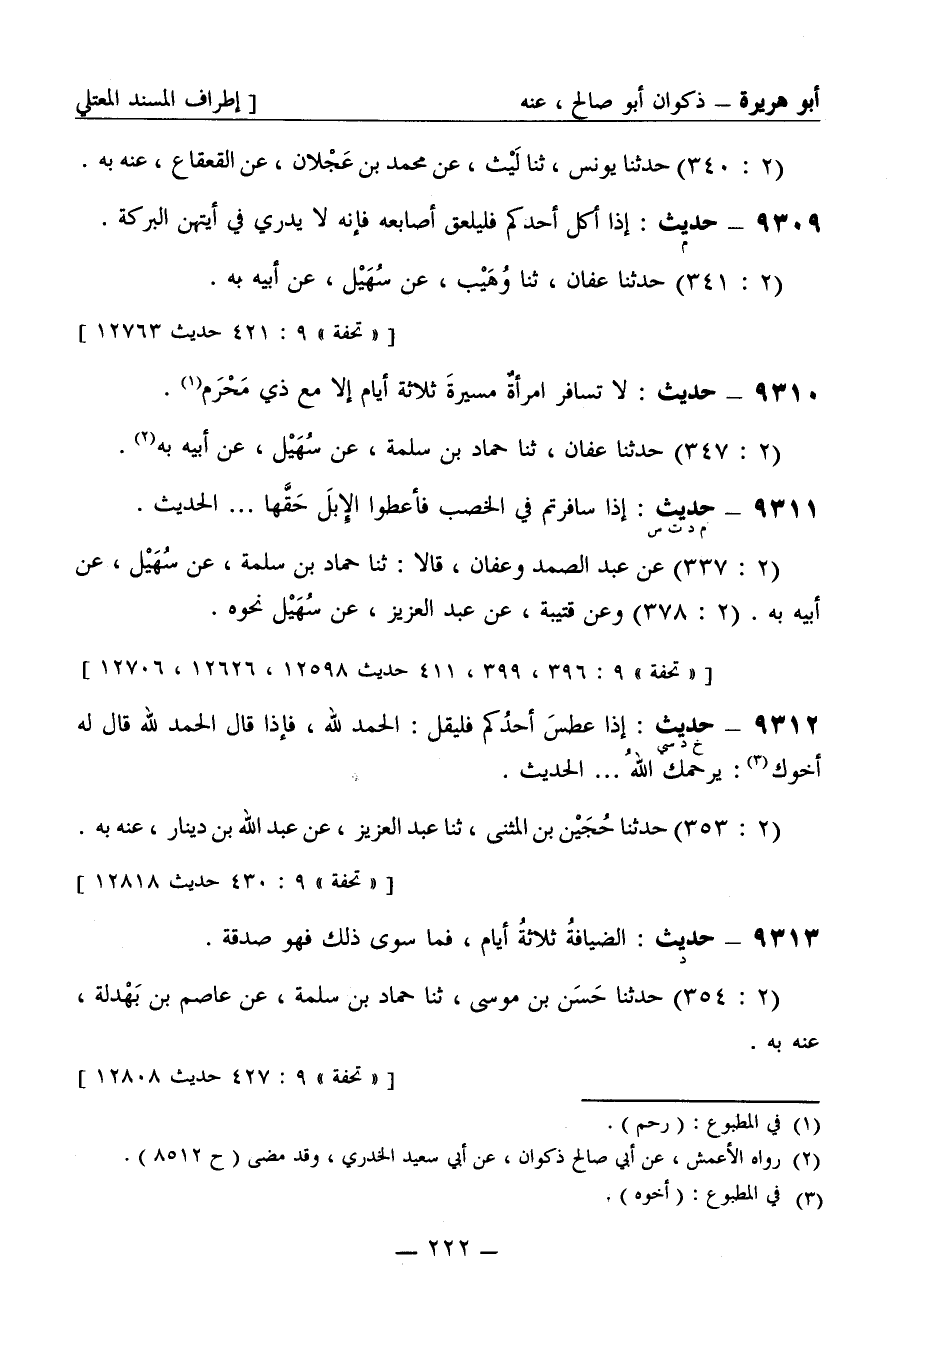 أبو هريرة – ذكوان أبو صالح ، عنه [ إطراف المسند المعتلي
(٢ : ٣٤٠) حدثنا يونس ، ثنا لَيْث ، عن محمد بن عَجْلان ، عن القعقاع ، عنه به .
٩٣٠٩ – حديث : إذا أكل أحدكم فليلعق أصابعه فإنه لا يدري في أيتهن البركة .
م
(٢ : ٣٤١) حدثنا عفان ، ثنا وُهَيْب ، عن سُهَيْل ، عن أبيه به .
[ « تحفة » ٩ : ٤٢١ حديث ١٢٧٦٣ ]
٩٣١٠ – حديث : لا تسافر امرأةٌ مسيرةَ ثلاثة أيام إلا مع ذي مَحْرَم(١) .
(٢ : ٣٤٧) حدثنا عفان ، ثنا حماد بن سلمة ، عن سُهَيْل ، عن أبيه به(٢) .
٩٣١١ – حديث : إذا سافرتم في الخصب فأعطوا الإِبلَ حَقَّها ... الحديث .
م د ت س
(٢ : ٣٣٧) عن عبد الصمد وعفان ، قالا : ثنا حماد بن سلمة ، عن سُهَيْل ، عن
أبيه به . (٢ : ٣٧٨) وعن قتيبة ، عن عبد العزيز ، عن سُهَيْل نحوه .
[ « تحفة » ٩ : ٣٩٦ ، ٣٩٩ ، ٤١١ حديث ١٢٥٩٨ ، ١٢٦٢٦ ، ١٢٧٠٦ ]
٩٣١٢ – حديث : إذا عطسَ أحدُكم فليقل : الحمد لله ، فإذا قال الحمد لله قال له
خ د سي
أخوك(٣) : يرحمك اللهُ ... الحديث .
(٢ : ٣٥٣) حدثنا حُجَيْن بن المثنى ، ثنا عبد العزيز ، عن عبد الله بن دينار ، عنه به .
[ « تحفة » ٩ : ٤٣٠ حديث ١٢٨١٨ ]
٩٣١٣ – حديث : الضيافةُ ثلاثةُ أيام ، فما سوى ذلك فهو صدقة .
د
(٢ : ٣٥٤) حدثنا حَسَن بن موسى ، ثنا حماد بن سلمة ، عن عاصم بن بَهْدلة ،
عنه به .
[ « تحفة » ٩ : ٤٢٧ حديث ١٢٨٠٨ ]
(١) في المطبوع : ( رحم ) .
(٢) رواه الأعمش ، عن أبي صالح ذكوان ، عن أبي سعيد الخدري ، وقد مضى ( ح ٨٥١٢ ) .
(٣) في المطبوع : ( أخوه ) .
– ٢٢٢ –